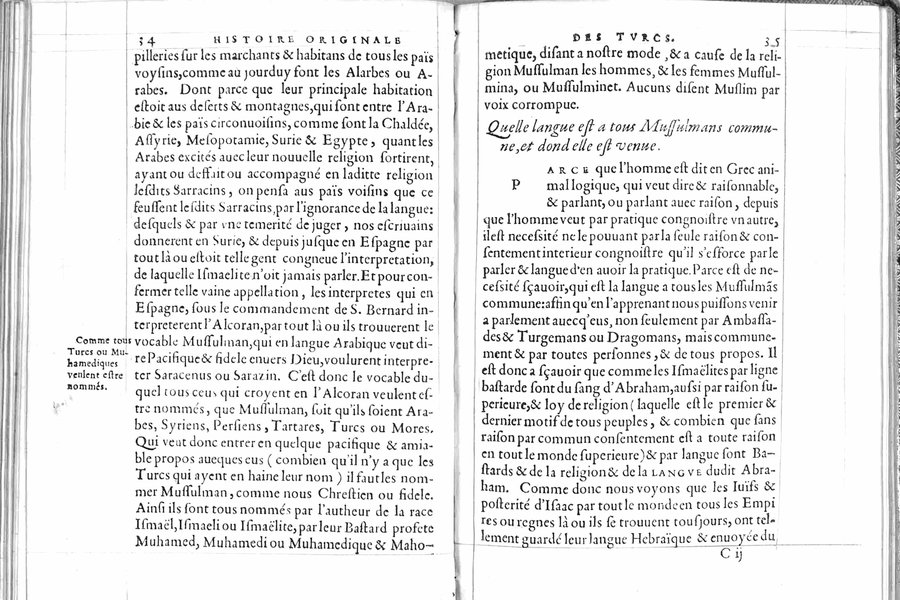 34 HISTOIRE ORIGINALE
pilleries ſur les marchants & habitans de tous les païs
voyſins,comme au jourduy font les Alarbes ou A-
rabes. Dont parce que leur principale habitation
eſtoit aus deſerts & montagnes,qui ſont entre l'Ara-
bie & les païs circonuoiſins, comme ſont la Chaldée,
Aſſyrie, Meſopotamie, Surie & Egypte, quant les
Arabes excités auec leur nouuelle religion ſortirent,
ayant ou deffait ou accompagné en laditte religion
leſdits Sarracins, on penſa aus païs voiſins que ce
feuſſent leſdits Sarracins,par l'ignorance de la langue:
deſquels & par vne temerité de juger, nos eſcriuains
donnerent en Surie, & depuis juſque en Eſpagne par
tout là ou eſtoit telle gent congneue l'interpretation,
de laquelle Iſmaelite n'oit jamais parler.Et pour con-
fermer telle vaine appellation, les interpretes qui en
Eſpagne, ſous le commandement de S. Bernard in-
terpreterent l'Alcoran,par tout là ou ils trouuerent le
vocable Muſſulman,qui en langue Arabique veut di-
re Pacifique & fidele enuers Dieu,voulurent interpre-
ter Saracenus ou Sarazin. C'eſt donc le vocable du-
quel tous ceus qui croyent en l'Alcoran veulent eſ-
tre nommés, que Muſſulman, ſoit qu'ils ſoient Ara-
bes, Syriens, Perſiens, Tartares, Turcs ou Mores.
Qui veut donc entrer en quelque pacifique & amia-
ble propos auecques eus ( combien qu'il n'y a que les
Turcs qui ayent en haine leur nom ) il faut les nom-
mer Muſſulman, comme nous Chreſtien ou fidele.
Ainſi ils ſont tous nommés par l'autheur de la race
Iſmaël,Iſmaeli ou Iſmaëlite, par leur Baſtard profete
Muhamed, Muhamedi ou Muhamedique & Maho-
Comme tous
Turcs ou Mu-
hamediques
veulent eſtre
nommés.
DES TVRCS. 35
metique, diſant a noſtre mode, & a cauſe de la reli-
gion Muſſulman les hommes, & les femmes Muſſul-
mina, ou Muſſulminet. Aucuns diſent Muſlim par
voix corrompue.
Quelle langue eſt a tous Muſſulmans commu-
ne,et dond elle eſt venue.
PARCE que l'homme eſt dit en Grec ani-
mal logique, qui veut dire & raiſonnable,
& parlant, ou parlant auec raiſon, depuis
que l'homme veut par pratique congnoiſtre vn autre,
il eſt neceſſité ne le pouuant par la ſeule raiſon & con-
ſentement interieur congnoiſtre qu'il s'efforce par le
parler & langue d'en auoir la pratique.Parce eſt de ne-
ceſſité ſçauoir,qui eſt la langue a tous les Muſſulmãs
commune:affin qu'en l'apprenant nous puiſſons venir
a parlement auecq'eus, non ſeulement par Ambaſſa-
des & Turgemans ou Dragomans, mais commune-
ment & par toutes perſonnes, & de tous propos. Il
eſt donc a ſçauoir que comme les Iſmaëlites par ligne
baſtarde ſont du ſang d'Abraham,auſſi par raiſon ſu-
perieure,& loy de religion ( laquelle eſt le premier &
dernier motif de tous peuples, & combien que ſans
raiſon par commun conſentement eſt a toute raiſon
en tout le monde ſuperieure) & par langue ſont Ba-
ſtards & de la religion & de la LANGVE dudit Abra-
ham. Comme donc nous voyons que les Iuifs &
poſterité d'Iſaac par tout le monde en tous les Empi
res ou regnes là ou ils ſe trouuent touſjours, ont tel-
lement guardé leur langue Hebraïque & enuoyée du
C ij